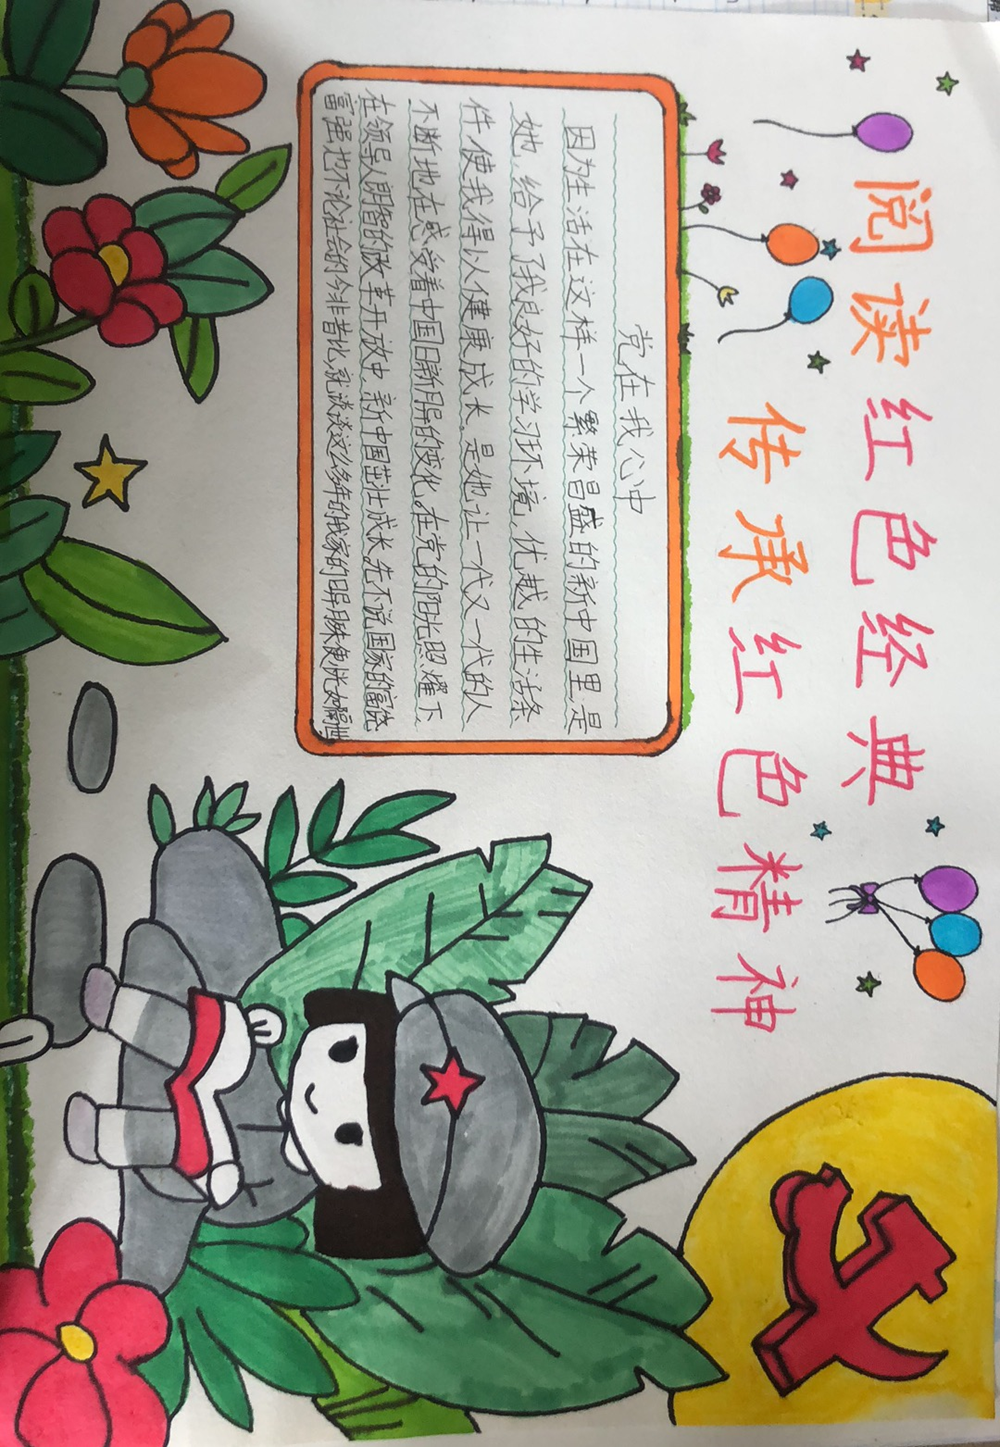 阅读红色经典
传承红色精神
党在我心中
因为生活在这样一个繁荣昌盛的新中国里.是
她,给予了我良好的学习环境,优越的生活条
件,使我得以健康成长.是她让一代又一代的人
不断地在感受着中国日新月异的变化.在党的阳光照耀下
在领导人明智的改革开放中,新中国茁壮成长,先不说国家的富饶
富强,也不论社会的今非昔比,就谈谈这么多年的我家的日异月殊便恍如隔世